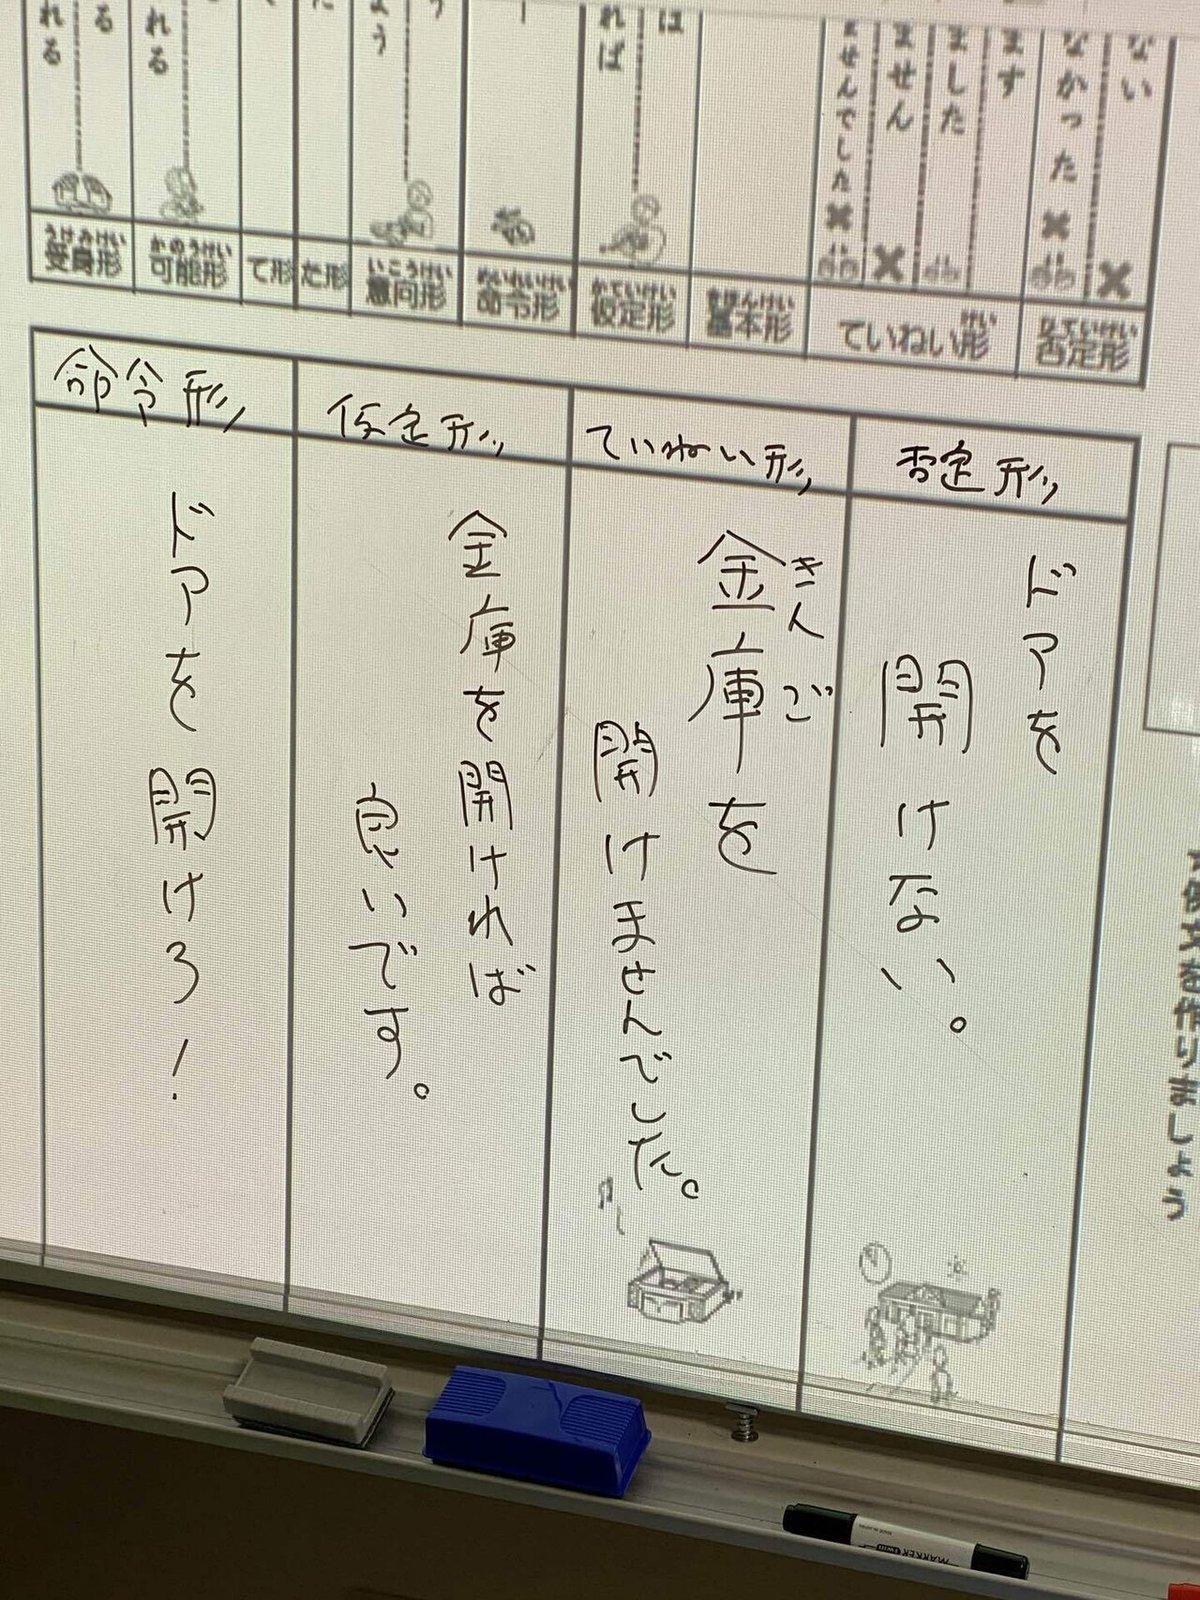 ない
なかった
ます
ました
ません
ませんでした
は
れば
う
よう
た
れる
る
れる
ひていけい
否定形
けい
ていねい形
きほんけい
基本形
かていけい
仮定形
めいれいけい
命令形
いこうけい
意向形
た形
て形
かのうけい
可能形
うけみけい
受身形
文を作りましょう
否定形
ドアを
開けない。
ていねい形
きんご
金庫を
開けませんでした。
仮定形
金庫を開ければ
良いです。
命令形
ドアを開けろ!
MARKER twin